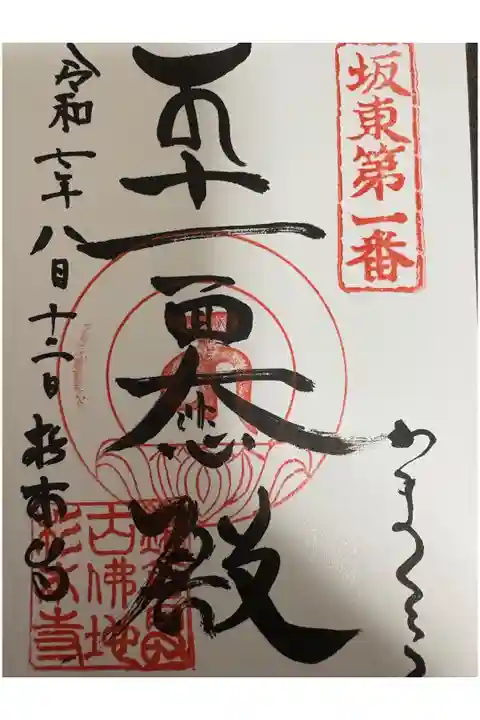 坂東第一番
かまくら
十一面大悲殿
令和七年八月十二日 杉本寺
鎌倉最
古佛地
杉本寺